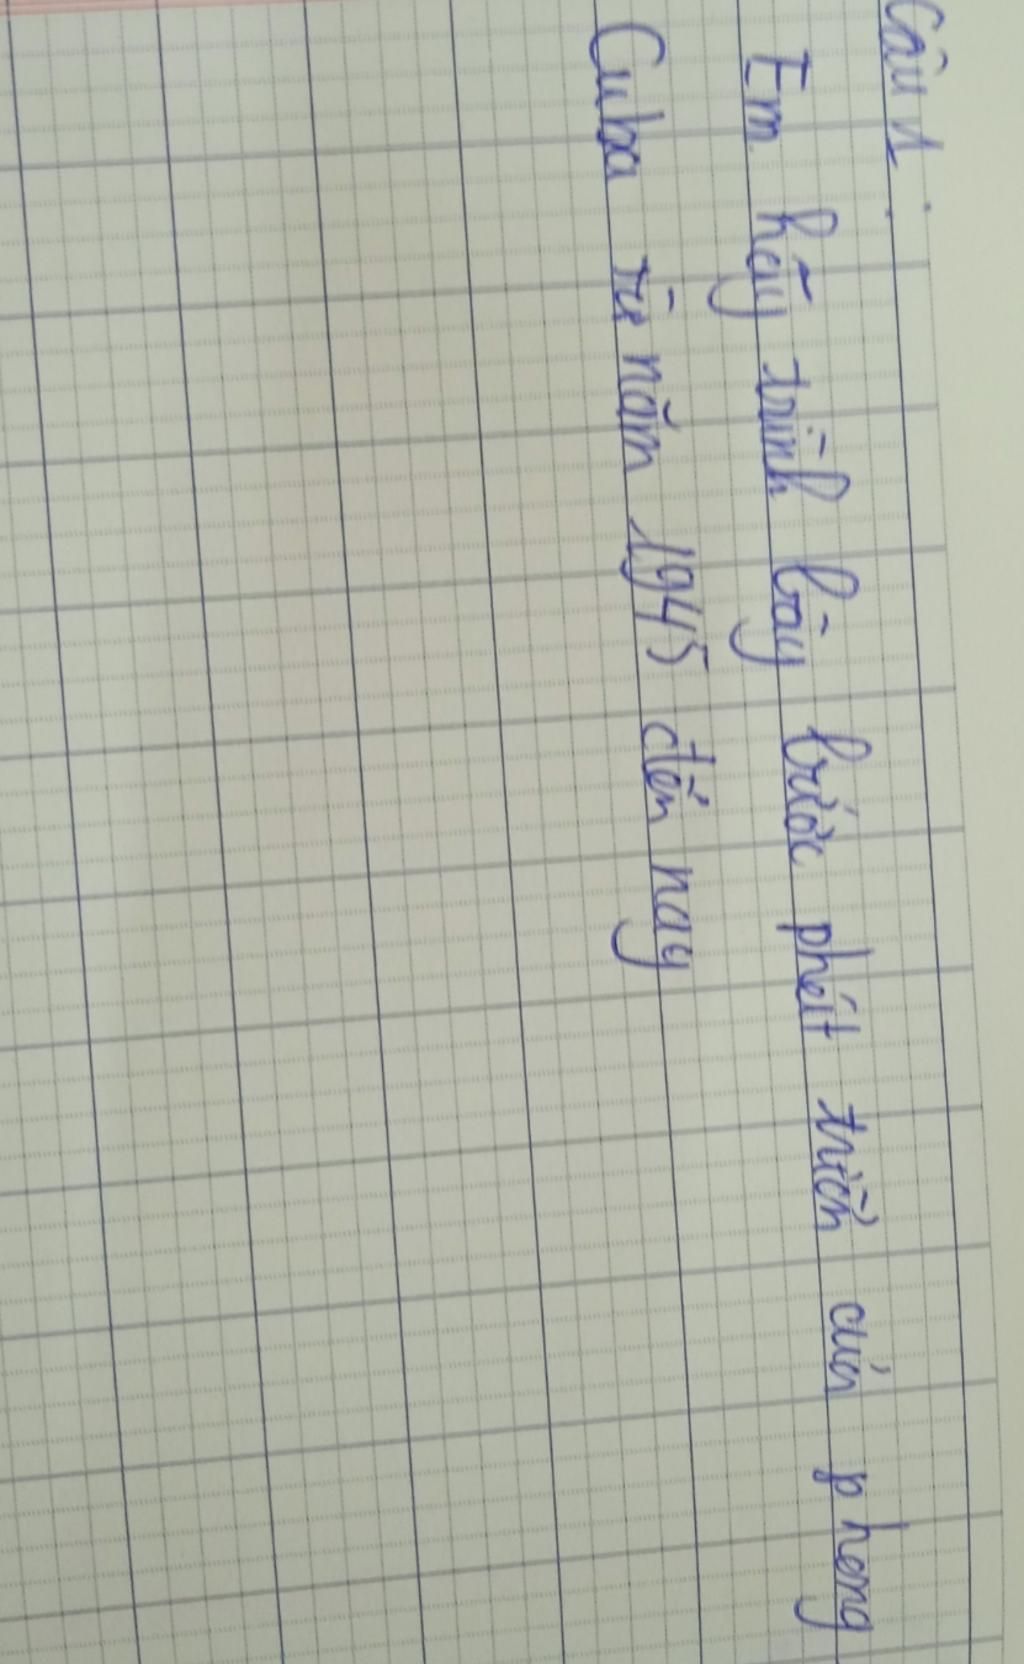 Câu 1:
Em hãy trình bày bước phát triển của phong
Cuba từ năm 1945 đến nay